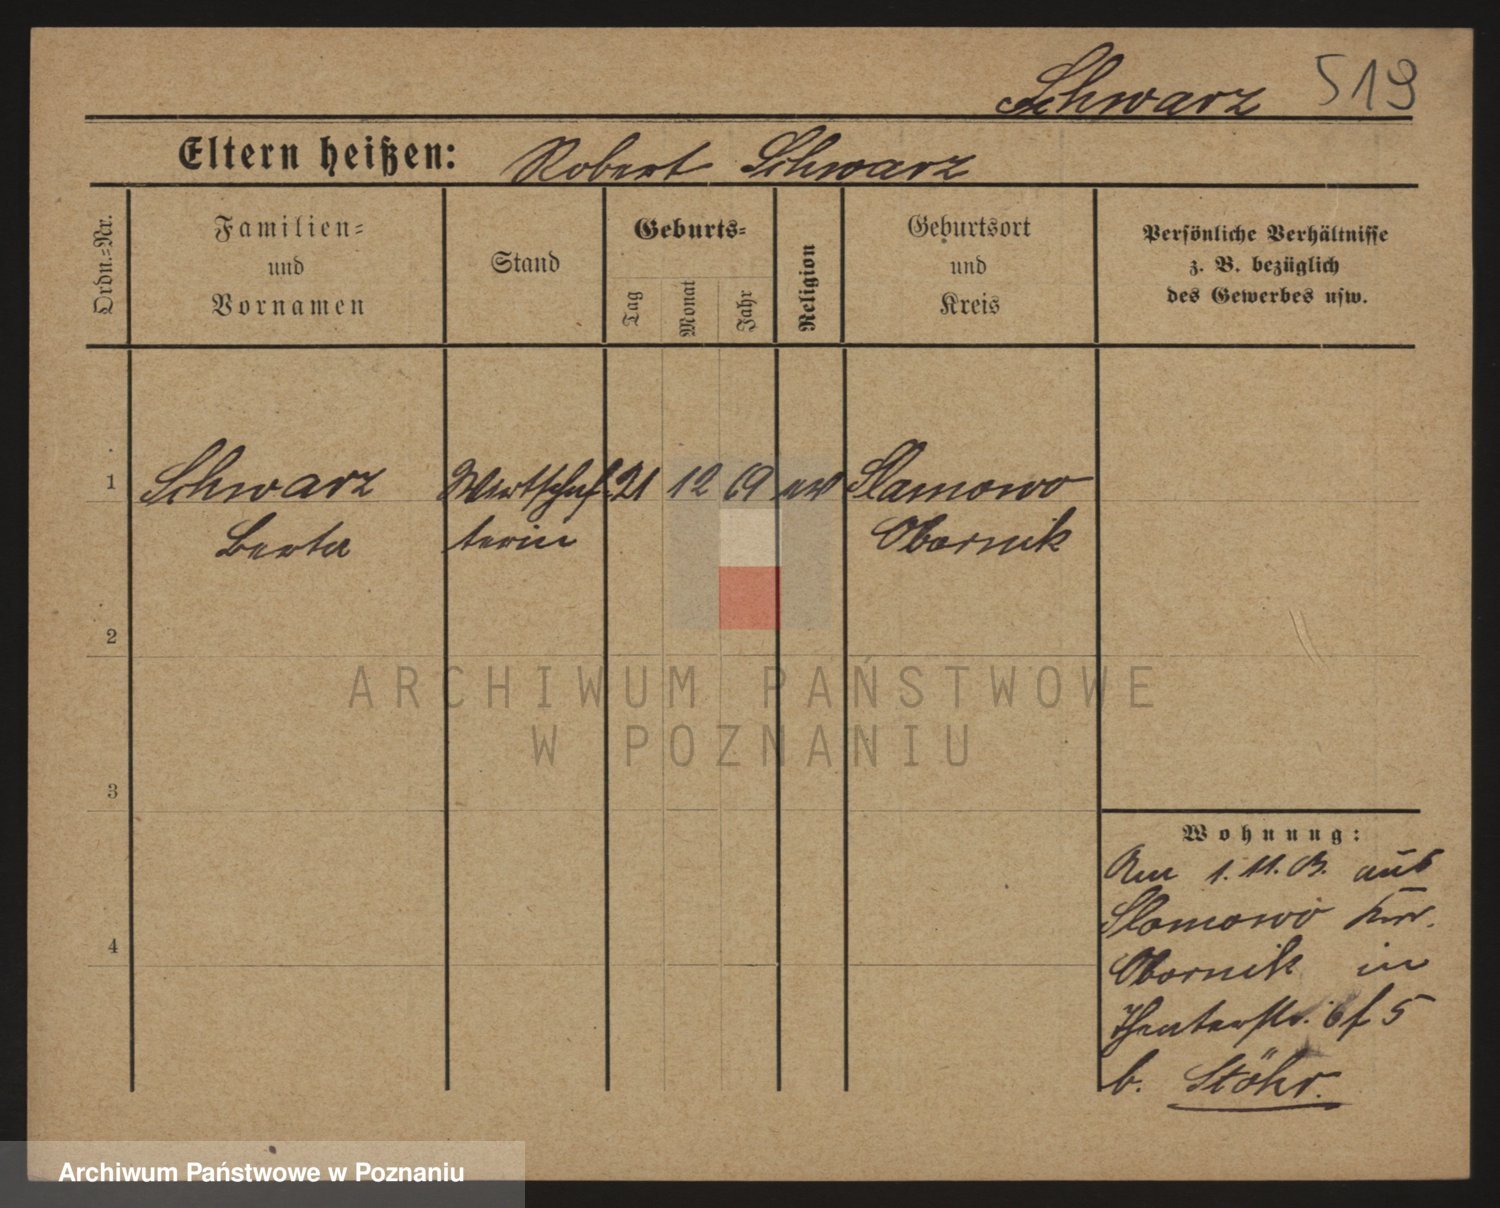 Schwarz 519
Eltern heißen: Robert Schwarz
Ordn.=Nr.
Familien=
und
Vornamen
Stand
Geburts=
Tag
Monat
Jahr
Religion
Geburtsort
und
Kreis
Persönliche Verhältnisse
z. B. bezüglich
des Gewerbes usw.
1 Schwarz Wirtschaf 21 12 69 ev Slamowo
Berta terin Obornik
2
ARCHIWUM PAŃSTWOWE
W POZNANIU
3
Wohnung:
Am 1. 11. 13. aus
Slomowo
4
Obornik in
Theaterstr. 6 f 5
b. Stöhr.
Archiwum Państwowe w Poznaniu